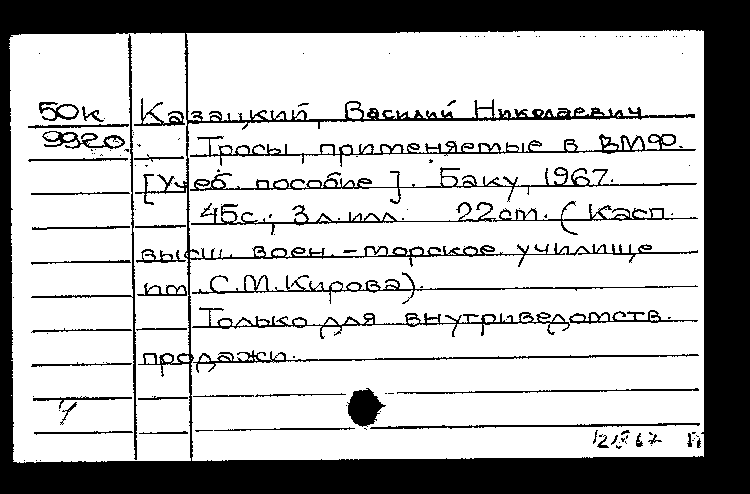 50к Казацкий, Василий Николаевич
9920. Тросы, применяемые в ВМФ.
[Учеб. пособие]. Баку, 1967.
45с.; 3 л. илл. 22 cm. (Касп.
высш. воен.-морское училище
им. С.М. Кирова).
Только для внутриведомств.
продажи.